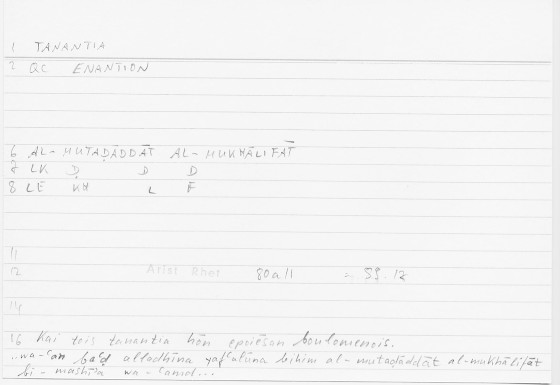 1 TANANTIA
2 QC ENANTION
6 AL-MUTAḌĀDDĀT AL-MUKHĀLIFĀT
7 LK Ḍ D D
8 LE KH L F
11
12 Arist Rhet 80a11 = 59.12
14
16 Kai tois tanantia hōn epoiēsan boulomenois.
..wa-ʿan baʿḍ alladhīna yafʿalūna bihim al-mutaḍāddāt al-mukhālifāt
bi-mashīʾa wa-ʿamd...